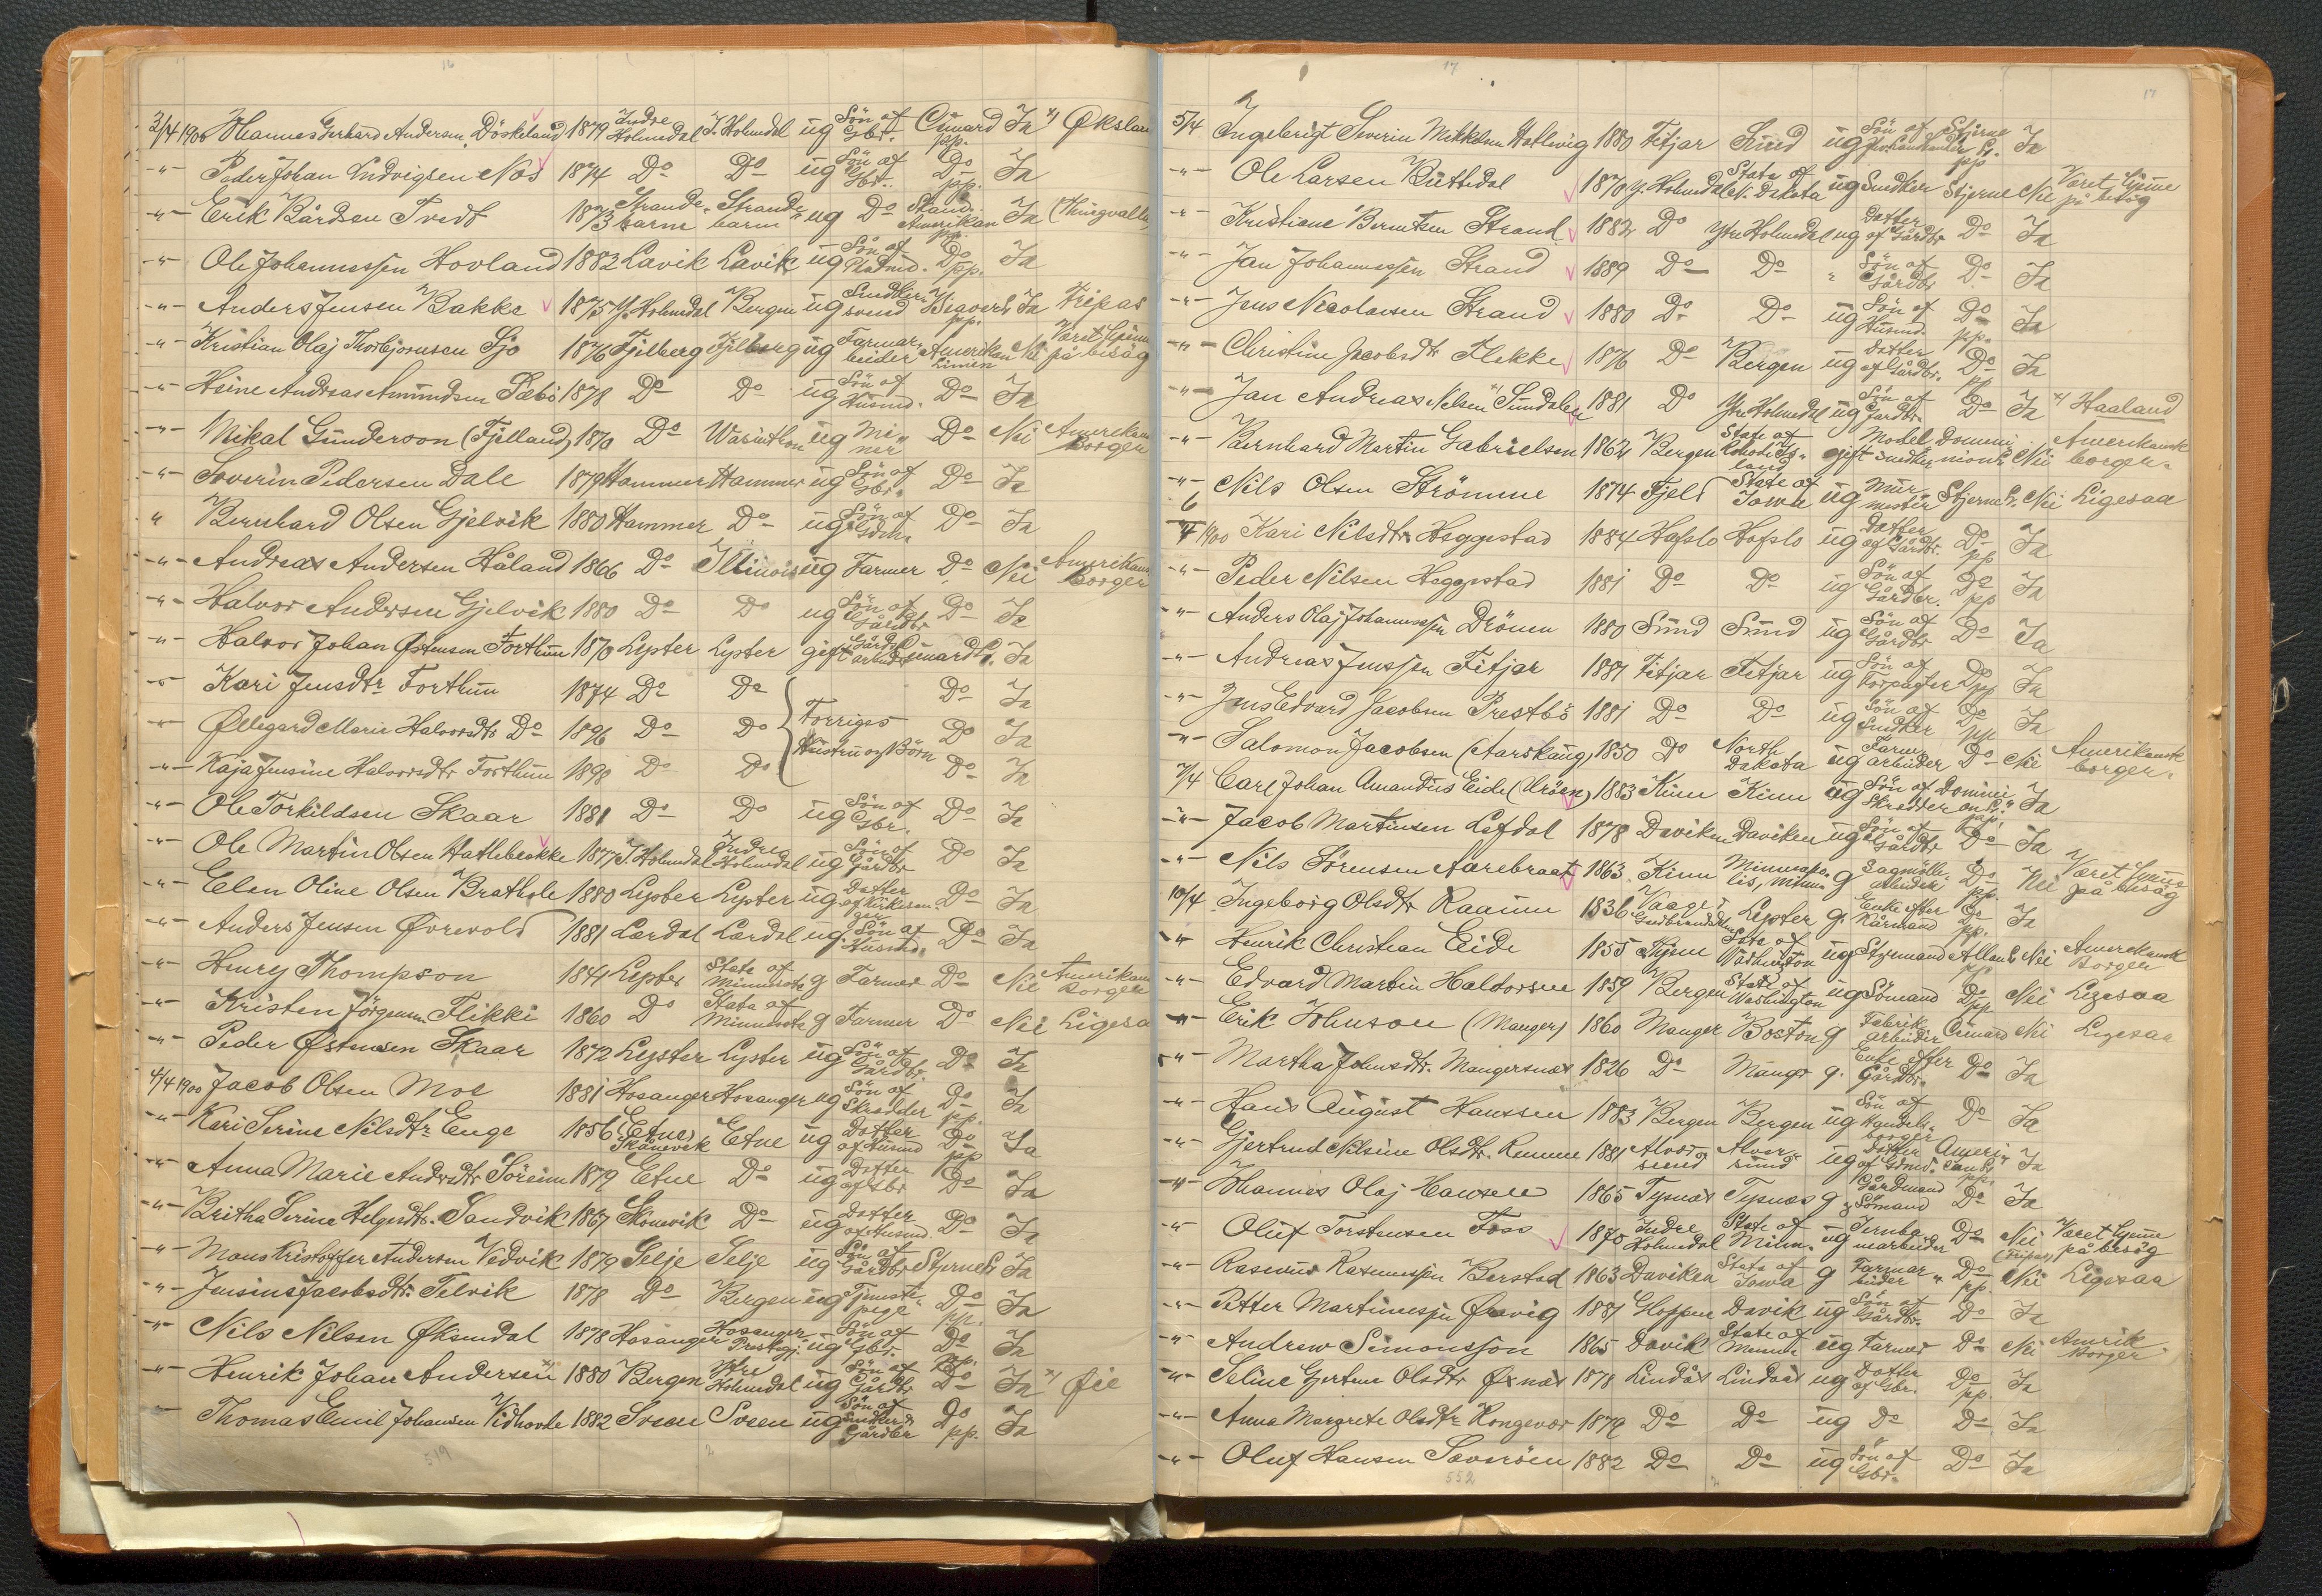 16
3/4 1900 Johannes Gerhard Andersen Döskeland 1879 Indre Holmedal I. Holmedal ug Sön af Gbr. Cunard pp. Ja *) Økslan
-"- Peder Johan Ludvigsen Nos 1874 Do Do ug Sön af Gbr. Do pp. Ja
-"- Erik Bårdsen Tvedt 1873 Strandebarm Strandebarm ug Do Skand. Amerikan pp. Ja (Thingvalla
-"- Ole Johannessen Hovland 1882 Lavik Lavik ug Sön af Do pp. Ja
-"- Anders Jensen Bakke 1875 Y. Holmedal Bergen ug Snedkersvend Beavers pp. Ja Fripas
-"- Kristian Olaj Thorbjørnsen Sjo 1876 Fjelberg Fjelberg ug Farmarbeider Amerikan Linien Nei Været hjem på besøg
-"- Heine Andreas Amundsen Sæbö 1878 Do Do ug Sön af Husmd. Do Ja
-"- Mikal Gunderson (Fjelland) 1870 Do Wasinthon ug Miner Do Nei Amerikan Borger
-"- Severin Pedersen Dale 1879 Hammer Hammer ug Sön af Gbr. Do Ja
" Bernhard Olsen Gjelvik 1880 Hammer Do ug Sön af Do Ja
-"- Andreas Andersen Håland 1866 Do Illinois ug Farmer Do Nei Amerikan borger
-"- Halvor Andersen Gjelvik 1880 Do Do ug Sön af Gårdbr Do Ja
-"- Halvor Johan Østensen Forthun 1870 Lyster Lyster gift Gårdsarbeid Cunard L. Ja
-"- Kari Jensdtr Forthun 1874 Do Do Do Ja
-"- Øllegard Marie Halvorsdtr Do 1896 Do Do Forriges Hustru og Börn Do Ja
-"- Kaja Jensine Halvorsdtr Forthun 1898 Do Do Do Ja
-"- Ole Torkildsen Skaar 1881 Do Do ug Sön af Gbr. Do Ja
-"- Ole Martin Olsen Hatlebrekke 1877 I. Holmedal Indre Holmedal ug Sön af Gårdbr Do Ja
-"- Elen Oline Olsen Brathole 1880 Lyster Lyster ug Datter af Do Ja
-"- Anders Jensen Øvrevold 1881 Lærdal Lærdal ug Sön af Husmd. Do Ja
-"- Henry Thompson 1841 Lyster State of Minnesota g Farmer Do Nei Amerikan Borger
-"- Kristen Jörgensen Flikki 1860 Do State of Minnesota g Farmer Do Nei Ligesa
-"- Peder Østensen Skaar 1872 Lyster Lyster ug Sön af Gårdbr. Do Ja
4/4 1900 Jacob Olsen Moe 1881 Hosanger Hosanger ug Sön af Skrædder Do pp. Ja
-"- Kari Serine Nilsdtr Enge 1856 Etne, Skånevik Etne ug Datter af Husmd Do pp Ja
-"- Anna Marie Andersdtr Söreim 1879 Etne Do ug Datter af Gbr Do Ja
-"- Britha Serine Helgesdtr. Sandvik 1867 Skånevik Do ug Datter af Husmd. Do Ja
-"- Mons Kristoffer Andersen Vedvik 1879 Selje Selje ug Sön af Gårdbr Stjerne L. Ja
-"- Jensine Jacobsdtr. Telvik 1878 Do Bergen ug Tjenestepige Do pp. Ja
-"- Nils Nilsen Øksendal 1878 Hosanger Hosanger Prestegj. ug Sön af Gbr. Do Ja
-"- Henrik Johan Andersen *) 1880 Bergen Ytre Holmedal ug Sön af Gårdbr Do Ja *) Øie
- Thomas Emil Johansen Vidhovde 1882 Sveen Sveen ug Sön af Snedker & Gårdbr Do pp. Ja
519
17
17
5/4 Ingebrigt Severin Mikkelsen Hatlevig 1880 Fitjar Sund ug Sön af Stjerne L. pp Ja
-"- Ole Larsen Rüttedal 1870 Y. Holmedal State of N. Dakota ug Snedker Stjerne Nei Været hjeme på besøg
-"- Kristiane Berntsen Strand 1882 Do Ytre Holmedal ug Datter af Gårdbr Do Ja
-"- Jan Johannessen Strand 1889 Do Do " Sön af Gårdbr Do Ja
-"- Jens Nicolaisen Strand 1880 Do Do ug Sön af Husmd. Do pp. Ja
-"- Christine Jacobsdtr Flekke 1876 Do Bergen ug Datter af Gårdbr. Do pp Ja
-"- Jan Andreas Nelsen *) Sundalen 1881 Do Ytre Holmedal ug Sön af Gardbr Do Ja *) Haaland
-"- Bernhard Martin Gabrielsen 1862 Bergen State of Rhode Island gift Model Snedker Dominion L. Nei Amerikansk borger
-"- Nils Olsen Strömme 1874 Fjeld State of Iowa ug Murmester Stjerne L. Nei Ligesaa
6/4 1900 Kari Nilsdtr Heggestad 1884 Hafslo Hafslo ug Datter af Gårdbr. Do pp Ja
-"- Peder Nilsen Heggestad 1881 Do Do ug Sön af Gårdbr. Do pp Ja
-"- Anders Olaj Johannessen Drönen 1880 Sund Sund ug Sön af Gårdbr Do Ja
-"- Andreas Jensen Fitjar 1881 Fitjar Fitjar ug Sön af Forpagter Do pp Ja
-"- Jens Edvard Jacobsen Prestbö 1881 Do Do ug Sön af Snedker Do pp Ja
-"- Salomon Jacobsen (Aarskaug) 1850 Do North Dakota ug Farmarbeider Do Nei Amerikansk borger.
7/4 Carl Johan Amandus Eide (Uröen) 1883 Kinn Kinn ug Sön af Skredder Dominion L. pap. Ja
-"- Jacob Martinsen Lefdal 1878 Daviken Daviken ug Sön af Gårdbr Do Ja
-"- Nils Sörensen Aarebraat 1863 Kinn Minneapolis, Minn g Sagmölle arbeider Do pp. Nei Været hjeme på besøg
10/4 Ingeborg Olsdtr Raaum 1836 Vaage i Gudbrandsdalen Lyster g. Enke efter Kårmand Do pp. Ja
-"- Henrik Christian Eide 1855 State of Washington ug Styrmand Allan L Nei Amerikansk Borger
-"- Edvard Martin Haldorsen 1859 Bergen State of Washington ug Sömand Do pp Nei Ligesaa
-"- Erik Johnson (Manger) 1860 Manger Boston g Fabrik arbeider Cunard Nei Ligesaa
-"- Martha Johnsdtr. Mangersnæs 1826 Do Manger g. Enke efter Gårdbr. Do Ja
-"- Hans August Hanssen 1883 Bergen Bergen ug Sön af Handelsborger Do Ja
-"- Gjertrud Nilsine Olsdtr. Remme 1881 Alversund Alversund ug Datter af Gdmd. American L pp. Ja
-"- Johannes Olaj Hansen 1865 Tysnæs Tysnæs g Gårdmand & Sömand Do Ja
-"- Oluf Torstensen Foss 1870 Indre Holmedal State of Minn. ug Jernbanearbeider Do Nei (Fripas) Været hjeme på besøg
-"- Rasmus Rasmussen Berstad 1863 Daviken State of Iowa g Farmarbeider Do pp. Nei Ligesaa
-"- Petter Martinussen Ørevig 1881 Gloppen Davik ug Sön af Gårdbr. Do Ja
-"- Andrew Simonsson 1865 Davik State of Minn ug Farmer Do Nei Amrik Borger
-"- Seline Gjertine Olsdtr Øxnæs 1878 Lindås Lindaas ug Datter af Gbr. Do pp. Ja
-"- Anna Margrete Olsdtr Kongevær 1879 Do Do ug Do Do Ja
-"- Oluf Hansen Sæveröen 1882 Do Do ug Sön af Gbr. Do Ja
552